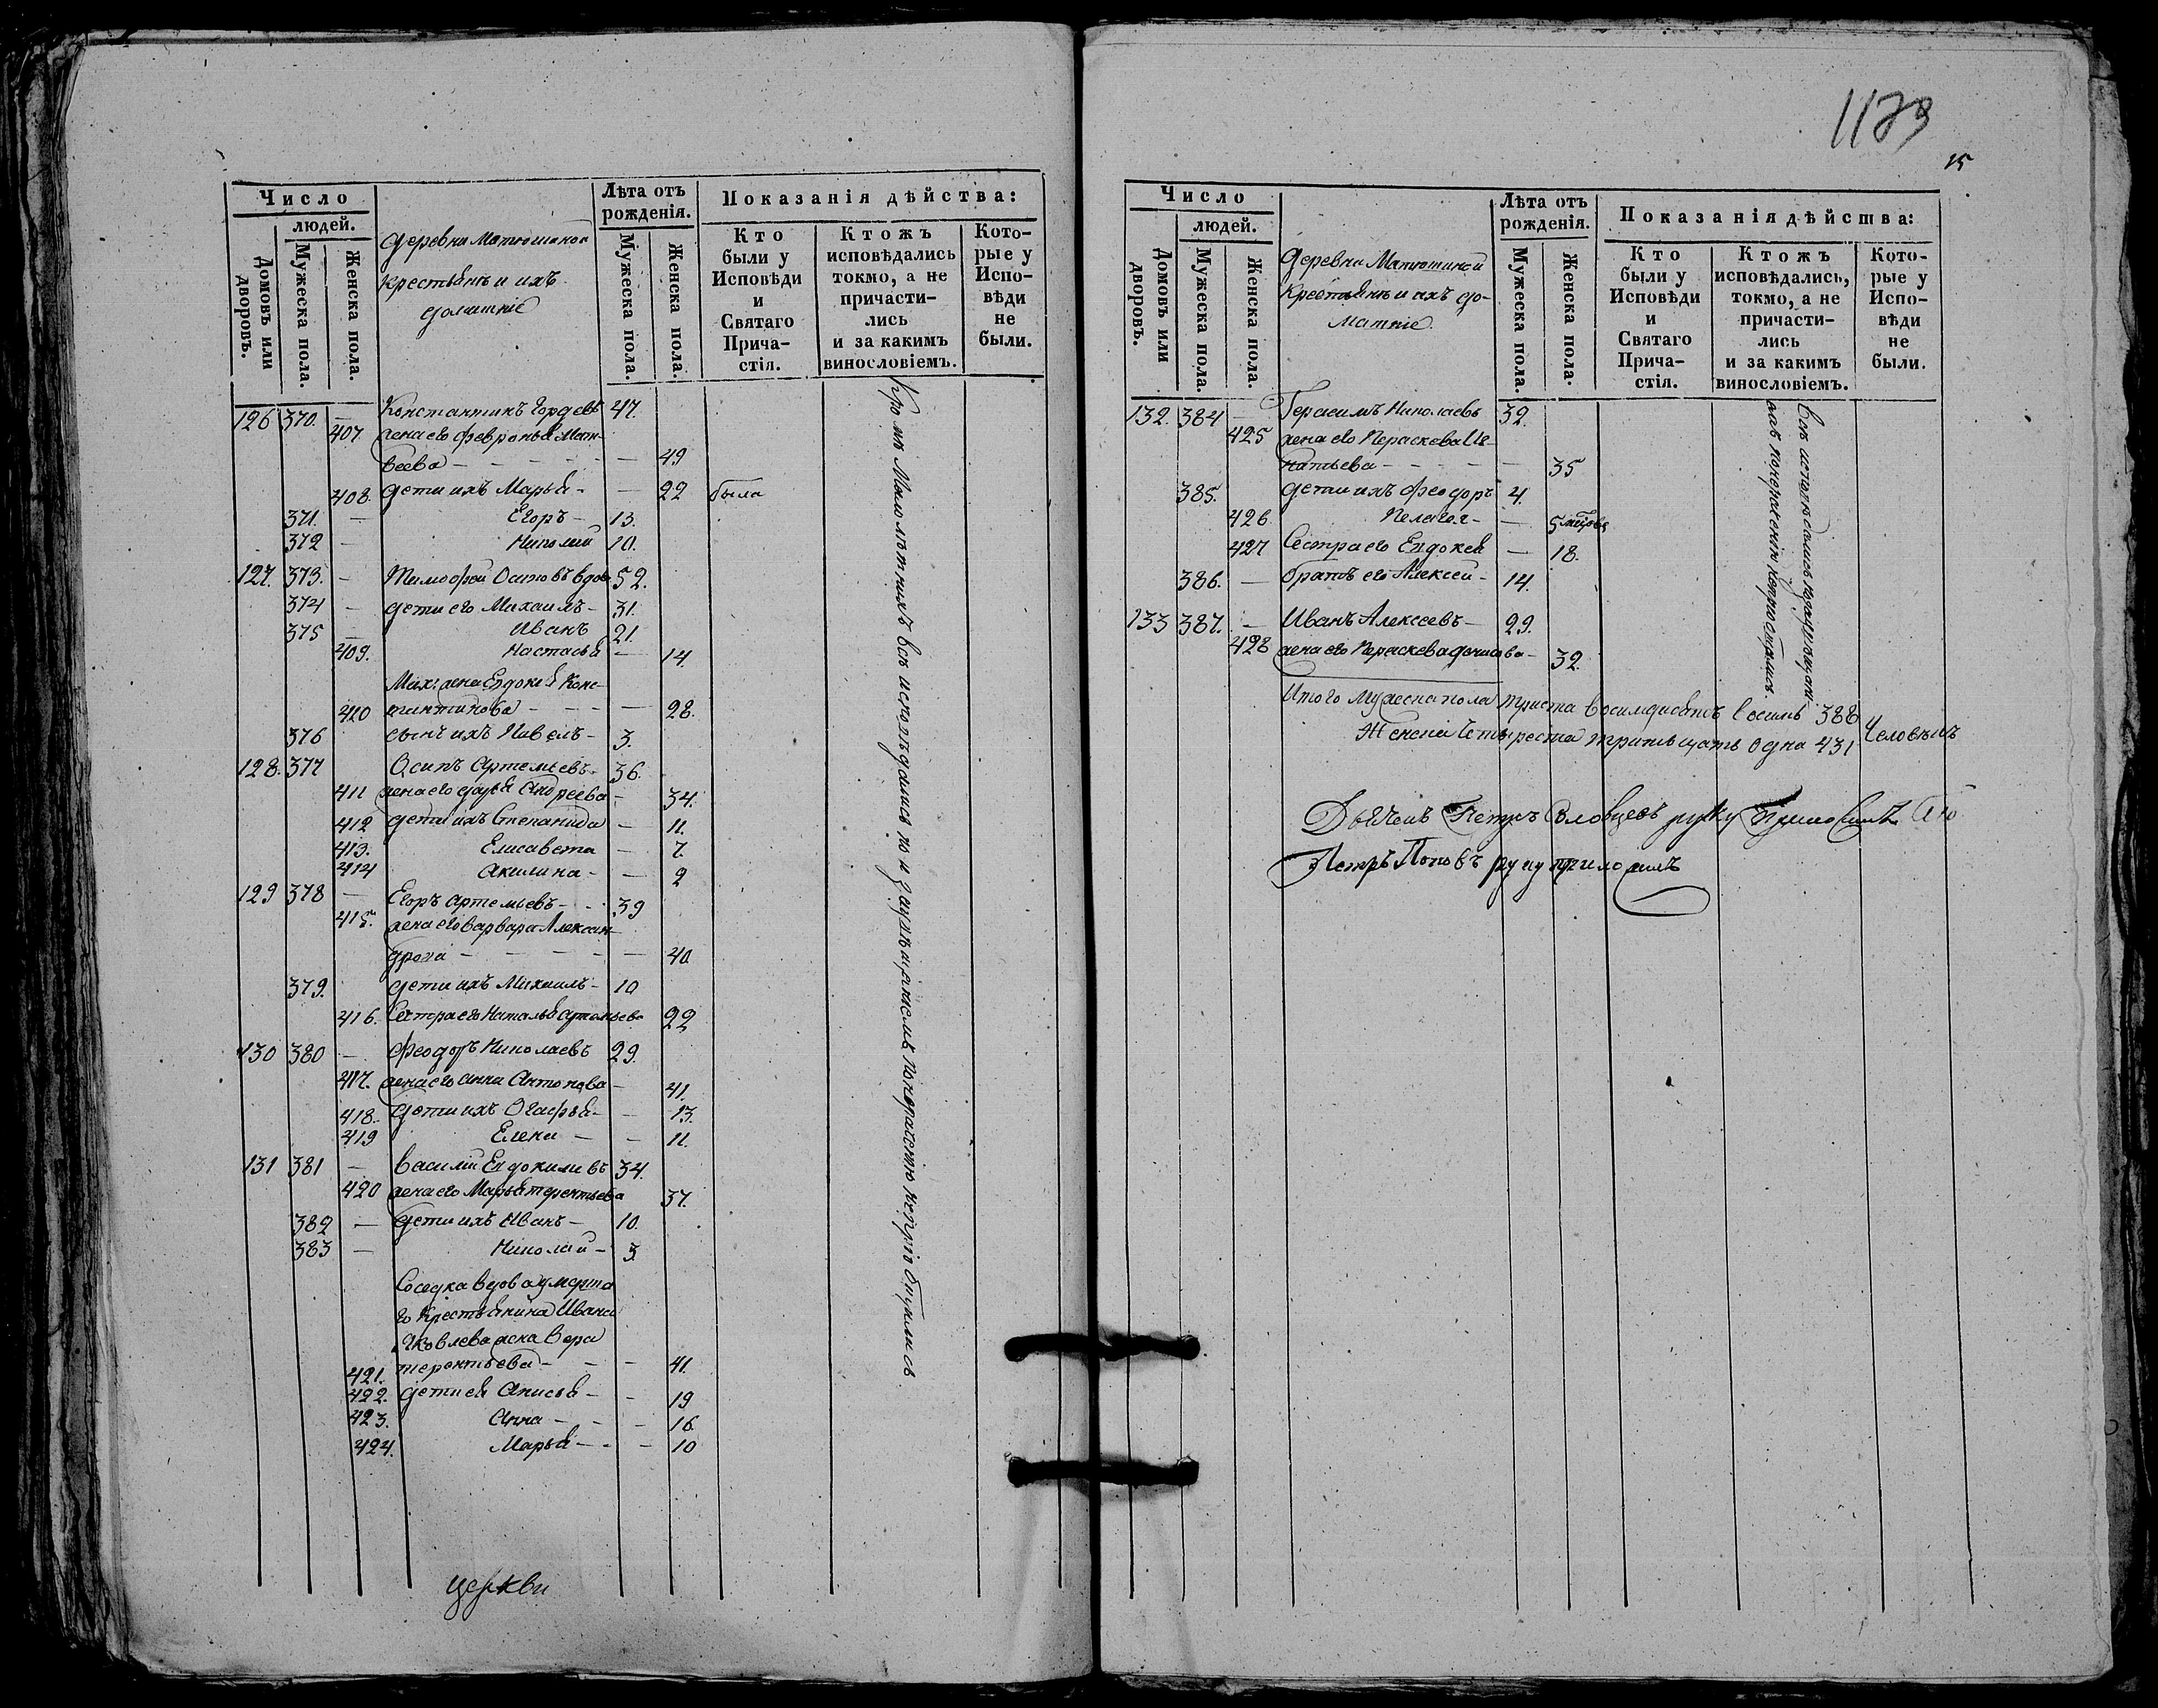 Число
людей.
Домовъ или дворовъ.
Мужеска пола.
Женска пола.
Деревни Матюшиной
крестьянъ и ихъ
домашніе
Лѣта отъ рожденія.
Мужеска пола.
Женска пола.
Показанія дѣйства:
Кто были у Исповѣди и Святаго Прича-стія.
Ктожъ исповѣдались токмо, а не причасти-лись и за какимъ винословіемъ.
Кото-рые у Испо-вѣди не были.
126 370. — Константинъ Гордеевъ 47.
407 жена его Февронья Мат-
веева — — 49
408. дети ихъ Марья — — 22 была
371. — Егоръ — 13.
372 — Николай 10.
127. 373. — Тимофей Осиповъ вдов 52.
374 — дети его Михаилъ — 31.
375 — Иванъ 21.
409. Настасья — 14.
Мих: жена Евдокия Конс-
410 тантинова — — 28.
376 сынъ ихъ Павелъ — 3.
128. 377 Осипъ Артемьевъ 36.
411 жена его Дарья Андреева — 34.
412 дети ихъ Степанида — 11.
413. Елисавета — 7.
414 Акилина — — 2
129 378 — Егоръ Артемьевъ — 39
415. жена его Варвара Алексан-
дрова — — 40
379. дети ихъ Михаилъ — 10
416. Сестра его Наталья Артемьева 22
130 380 — Феодоръ Николаевъ 29.
417. жена его Анна Антонова — 41.
418. дети ихъ Огафья — — 13.
419 Елена — — 11.
131 381 — Василий Евдокимовъ 34.
420 жена его Марья Терентьева 37.
382 — дети ихъ Иванъ — 10.
383 — Николай — 3
Соседка вдова умерша
го крестьянина Ивана
Яковлева жена Вера
421. Терентьева — — — 41.
422. дети ея Анисья — — 19
423. Анна — — — 16
424. Марья — — — 10
Кроме малолѣтнихъ всѣ исповѣдались но и за
церкви
1179
15
Число
людей.
Домовъ или дворовъ.
Мужеска пола.
Женска пола.
Деревни Матюшиной
Крестьянъ и ихъ до-
машние.
Лѣта отъ рожденія.
Мужеска пола.
Женска пола.
Показанія дѣйства:
Кто были у Исповѣди и Святаго Прича-стія.
Ктожъ исповѣдались, токмо, а не причасти-лись и за какимъ винословіемъ.
Кото-рые у Испо-вѣди не были.
132. 384 — Герасимъ Николаевъ 32.
425 жена его Пераскева Иг-
натьева — — — 35
385. дети ихъ Феодоръ 4.
426 Пелагея — — 5 мецовъ
427 Сестра его Евдокея — 18.
386. — братъ его Алексеи — 14.
133 387. — Иванъ Алексеевъ — 29.
428 жена его Пераскева Денисова — 32.
Всѣ исповѣдались но
Итого мужеска пола триста восимдисятъ восимь 388
Женска Четыреста тритцать одна 431 Человѣкъ
Дьячекъ Петръ Словцевъ руку приложилъ
Петръ Поповъ руку приложилъ